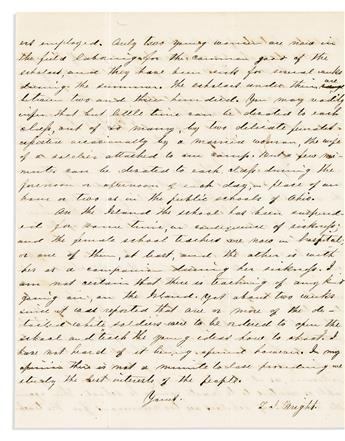 ers employed. Only two young women are now in
the field laboring for the common good of the
scholars, and they have been sick for several weeks
during the summer. The scholars under them, are
between two and three hundred. You may readily
infer that but little time can be devoted to each
class, out of so many, by two delicate females
assisted occasionally by a married woman, the wife
of a soldier attached to our camp. But a few mi-
nutes can be devoted to each class during the
forenoon or afternoon of each day, in place of an
hour or two as in the public schools of Ohio.
On the Island the school has been suspend-
ed for some time, in consequence of sickness;
and the female school teachers are now in hospital,
or one of them, at least, and the other is with
her as a companion during her sickness. I
am not certain that there is teaching of any kind
going on, on the Island, yet about two weeks
since it was reported that one or more of the de-
tailed white soldiers were to be ordered to open the
school and teach the young ideas how to shoot. I
have not heard of it being opened however. In my
opinion there is not a minute to lose providing we
study the best interests of the people.
Yours.
T. J. Wright.